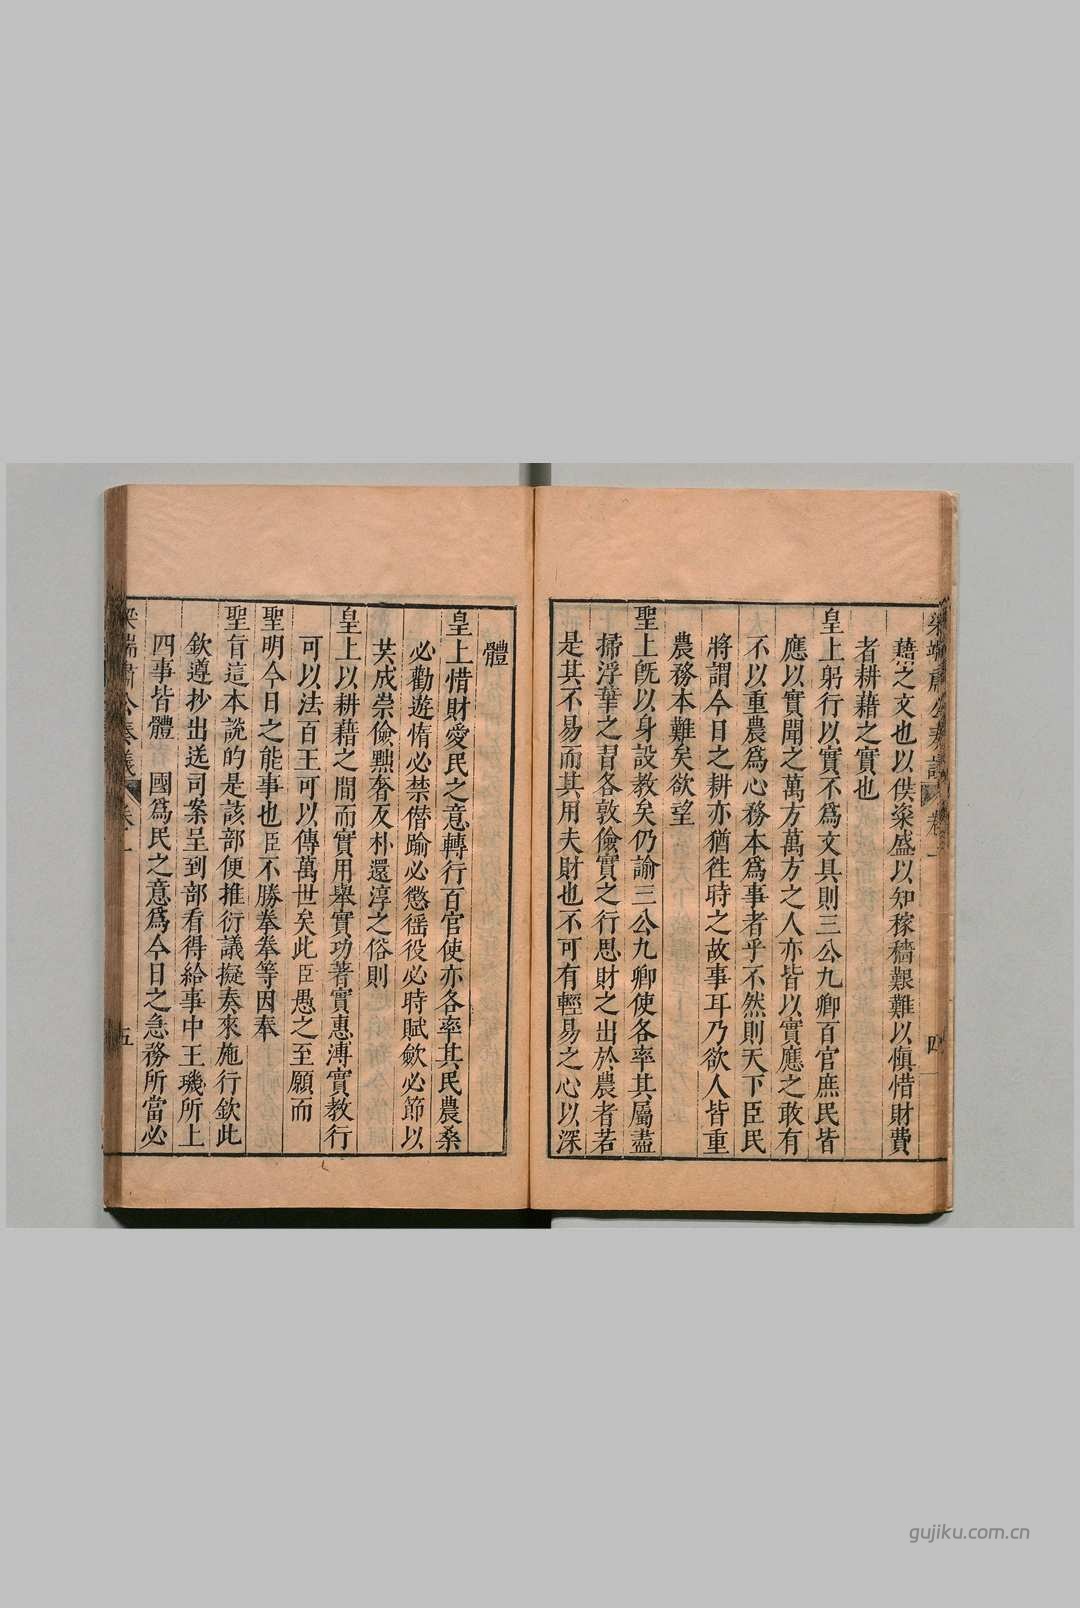 梁端肅公奏議 卷一 四
藉之文也以供粢盛以知稼穡艱難以愼惜財費
者耕藉之實也
皇上躬行以實不爲文具則三公九卿百官庶民皆
應以實聞之萬方萬方之人亦皆以實應之敢有
不以重農爲心務本爲事者乎不然則天下臣民
將謂今日之耕亦猶徃時之故事耳乃欲人皆重
農務本難矣欲望
聖上旣以身設教矣仍諭三公九卿使各率其屬盡
掃浮華之習各敦儉實之行思財之出於農者若
是其不易而其用夫財也不可有輕易之心以深
體
皇上惜財愛民之意轉行百官使亦各率其民農桑
必勸遊惰必禁僭踰必懲徭役必時賦歛必節以
共成崇儉黜奢反朴還淳之俗則
皇上以耕藉之間而實用舉實功著實惠溥實教行
可以法百王可以傳萬世矣此臣愚之至願而
聖明今日之能事也臣不勝拳拳等因奉
聖旨這本說的是該部便推衍議擬奏來施行欽此
欽遵抄出送司案呈到部看得給事中王璣所上
四事皆體 國爲民之意爲今日之急務所當必
梁端肅公奏議 卷一 五
gujiku.com.cn